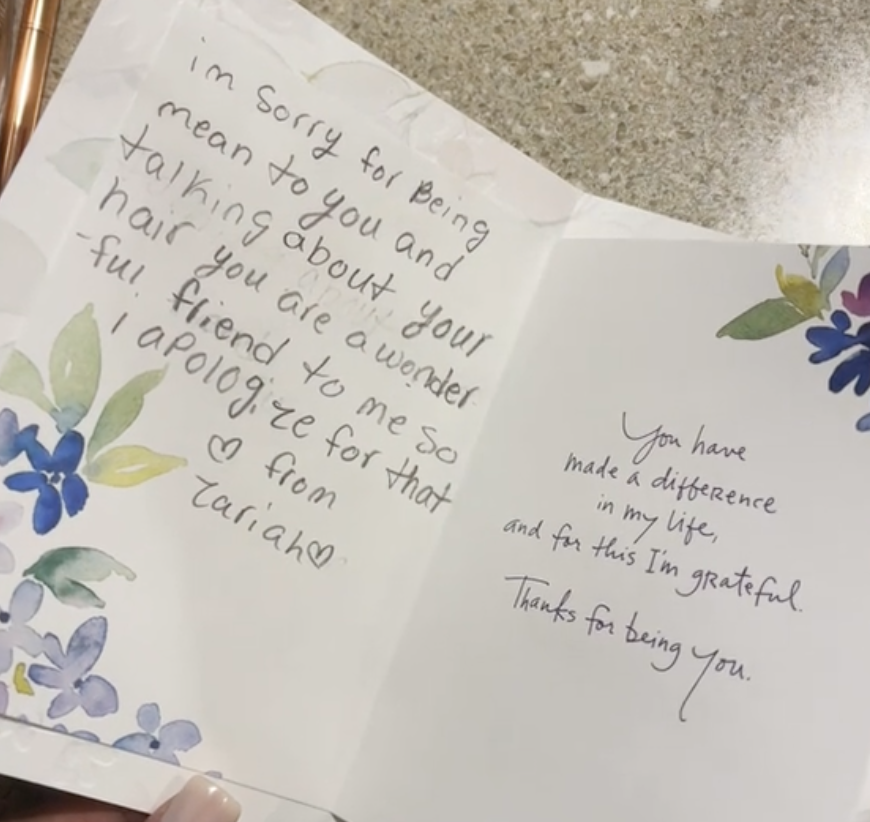 im Sorry for Being
mean to you and
talking about your
hair you are a wonder
-ful friend to me so
I apologize for that
♡ from
Zariah♡
You have
made a difference
in my life,
and for this I'm grateful.
Thanks for being you.